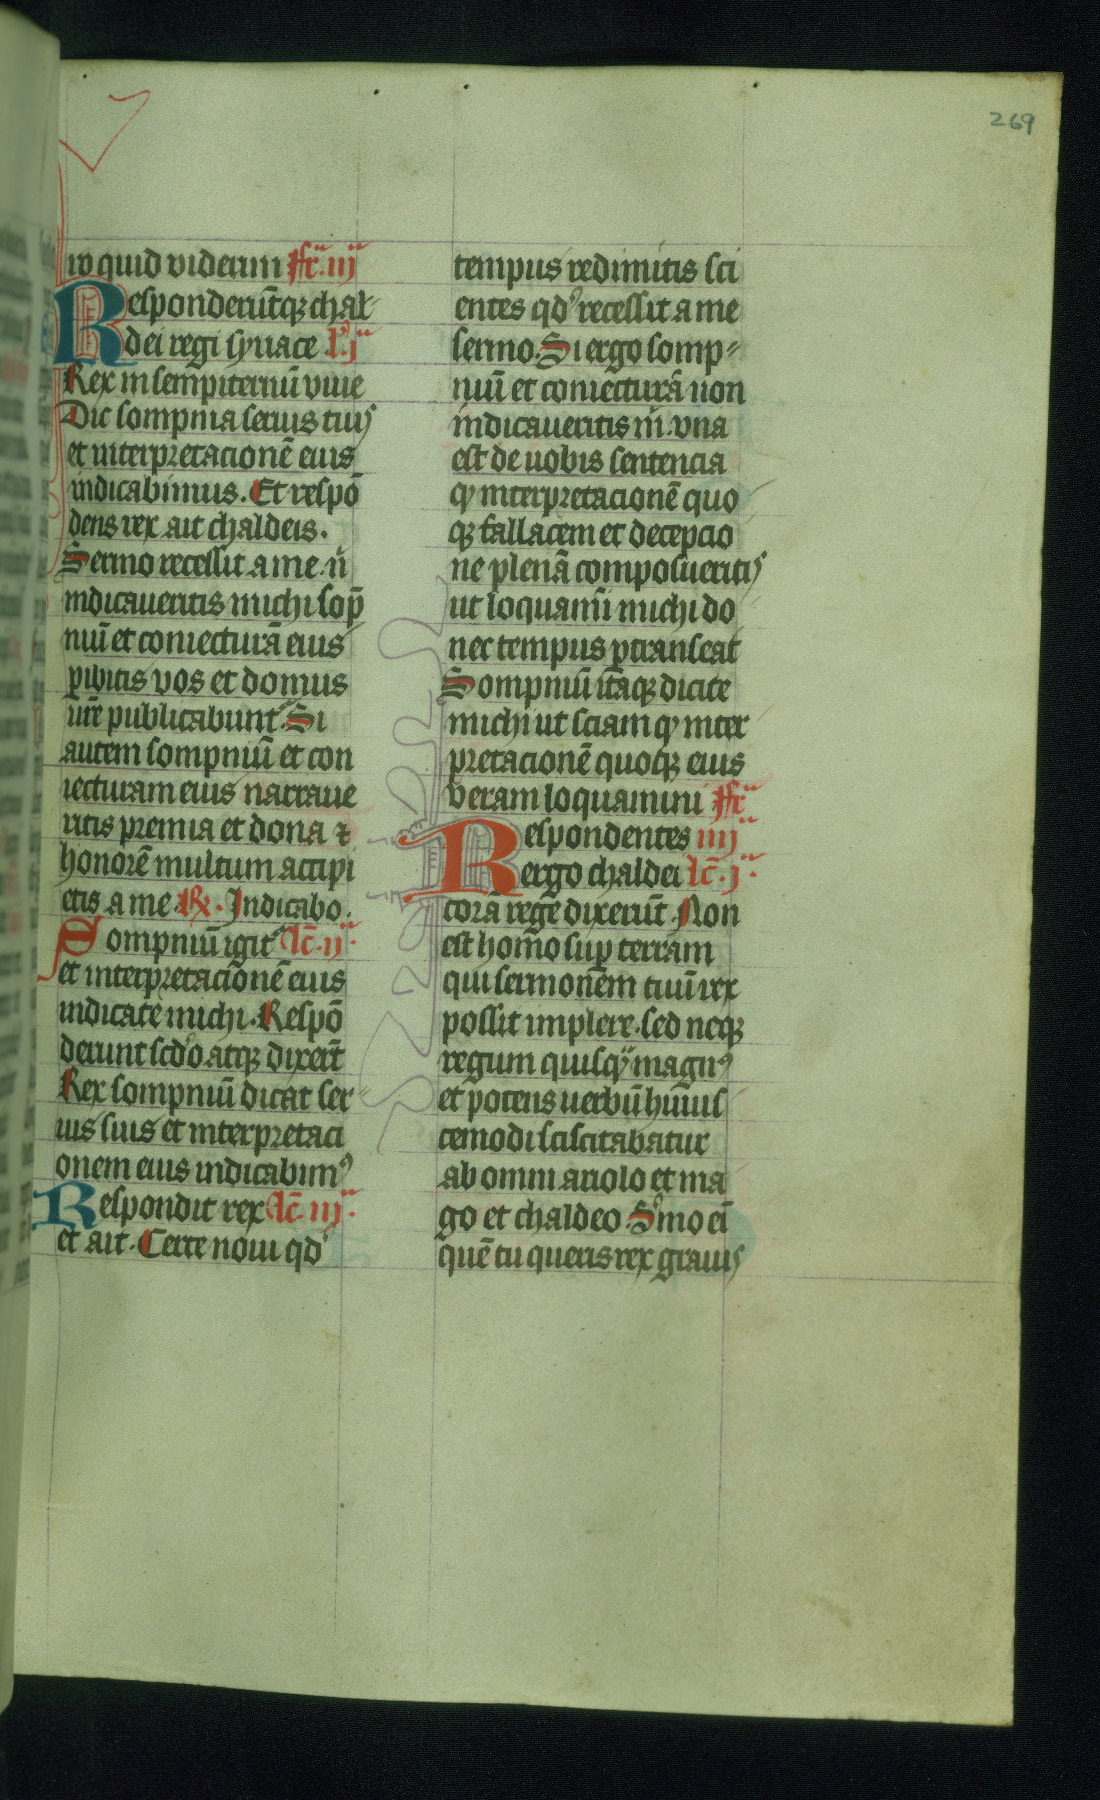 269
io quid viderim ffr͞. iij
Responderūtqꝫ chal
dei regi syriace l͞. j
Rex in sempiternū viue
Dic sompnia seruis tuis
et interpretacionē eius
indicabimus. Et respō
dens rex ait chaldeis.
Sermo recessit a me. n̄
indicaueritis michi sop̄
niū et coniecturā eius
ꝑibitis vos et domus
ur̄e publicabunt͛. Si
autem sompniū et con
iecturam eius narraue
ritis premia et dona ⁊
honorē multum accipi
etis a me. ℞. Indicabo.
Sompniū igit͛ lc̄. ij
et interpretacionē eius
indicate michi. Respō
derunt scd̓o. atqꝫ dixer̄t
Rex sompniū dicat ser
uis suis et interpretaci
onem eius indicabimꝰ
Respondit rex lc̄. iij
et ait. Certe noui qd̓
tempus redimitis sci
entes qd̓ recessit a me
sermo. Si ergo somp
niū et coniecturā non
indicaueritis m̄. vna
est de uobis sentencia
qꝫ interpretacionē quo
qꝫ fallacem et decepcio
ne plenā composueritis
ut loquami͛ michi do
nec tempus ꝑtranseat
Sompniū itaqꝫ dicite
michi ut sciam qꝫ inter
pretacionē quoqꝫ eius
veram loquamini ffr͞
Respondentes iiij
ergo chaldei lc̄. j
corā rege dixerūt. Non
est homo suꝑ terram
qui sermonem tuū rex
possit implere. sed neqꝫ
regum quisqͣ magnꝰ
et potens uerbū huius
cemodi sciscitabatur
ab omni ariolo et ma
go et chaldeo. S̓mo ei̅
quē tu queris rex grauis